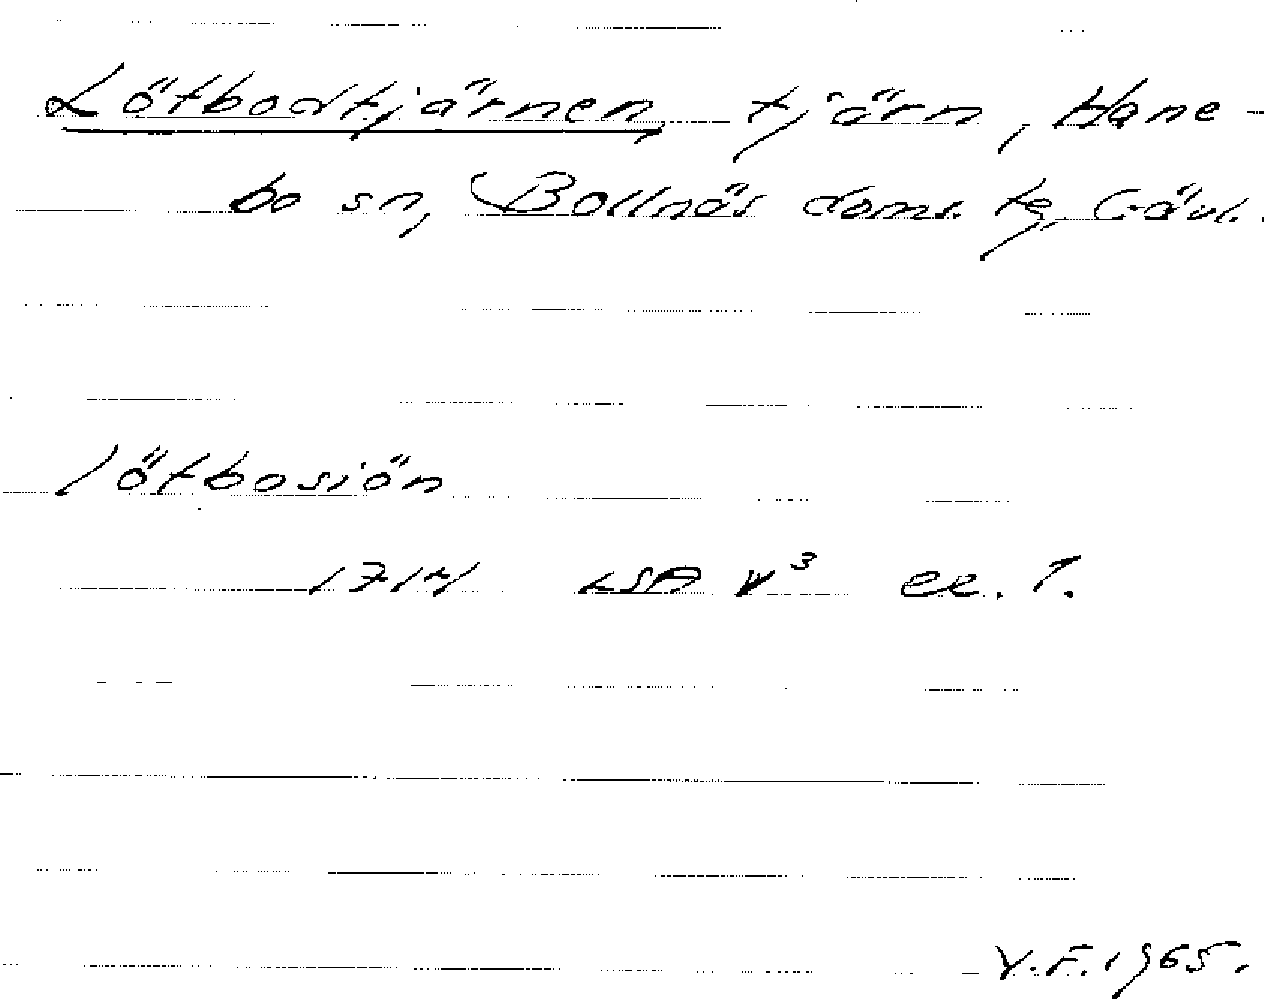 Lötbodtjärnen, tjärn, Hane-
bo sn, Bollnäs doms. tg, Gävl.
lötbosiön
1714 LSA V³ ee. 1.
V.F. 1965.